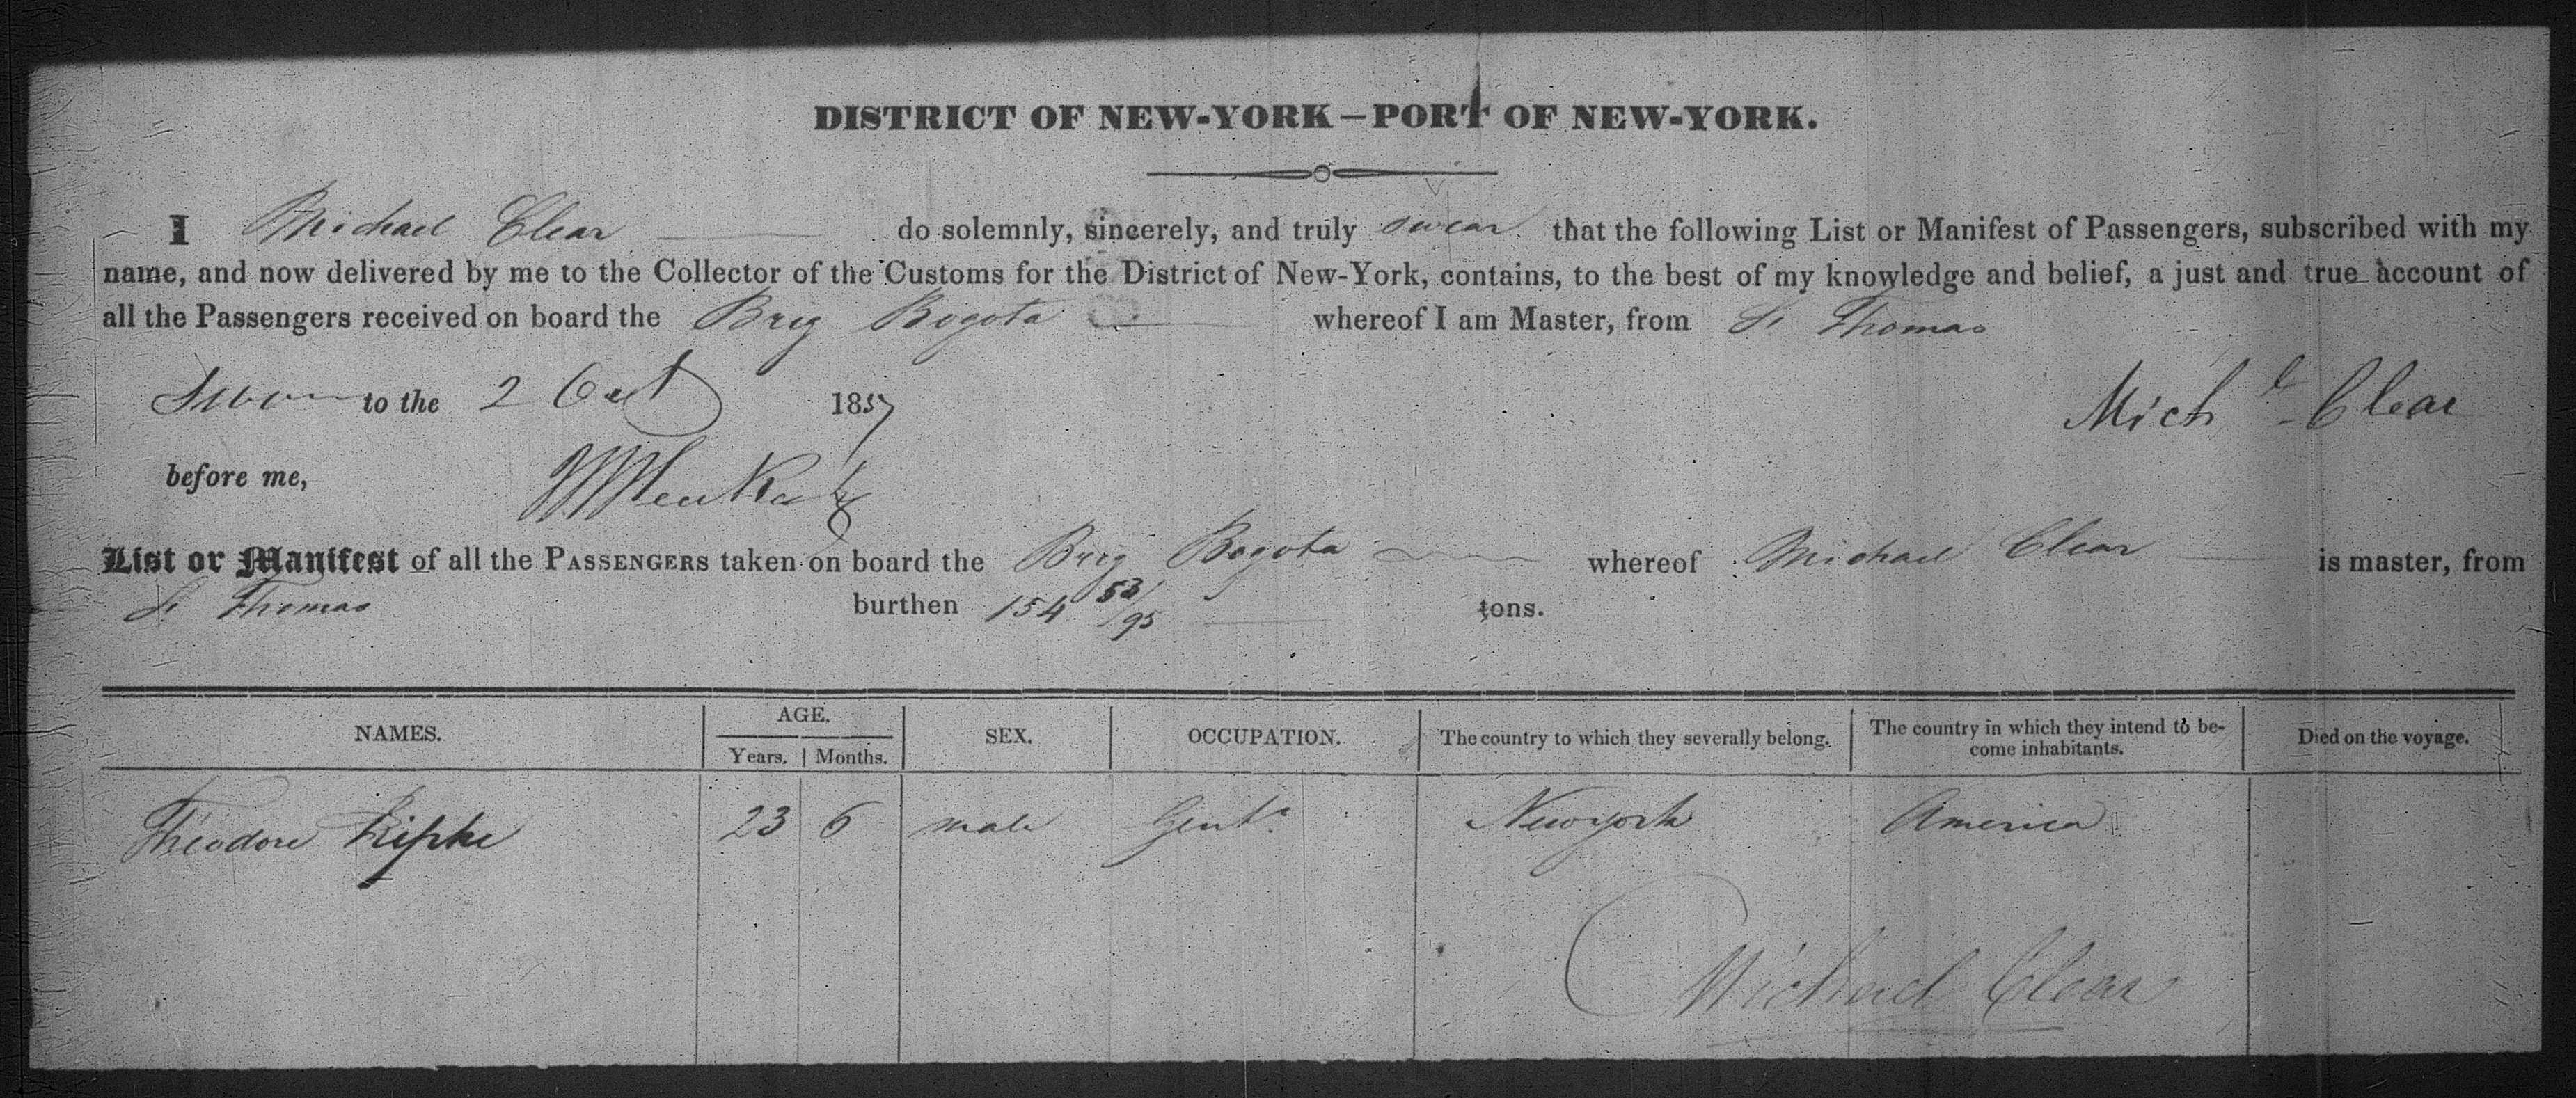 DISTRICT OF NEW-YORK—PORT OF NEW-YORK.
I Michael Clear do solemnly, sincerely, and truly swear that the following List or Manifest of Passengers, subscribed with my
name, and now delivered by me to the Collector of the Customs for the District of New-York, contains, to the best of my knowledge and belief, a just and true account of
all the Passengers received on board the Brig Bogota whereof I am Master, from St Thomas
Sworn to the 2 Oct 1837
Michl Clear
before me,
List or Manifest of all the PASSENGERS taken on board the Brig Bogota whereof Michael Clear is master, from
St Thomas burthen 154 53/95 tons.
NAMES. AGE. SEX. OCCUPATION. The country to which they severally belong. The country in which they intend to be-
come inhabitants. Died on the voyage.
Years. Months.
Theodore 23 6 male Gent New york America
Michael Clear